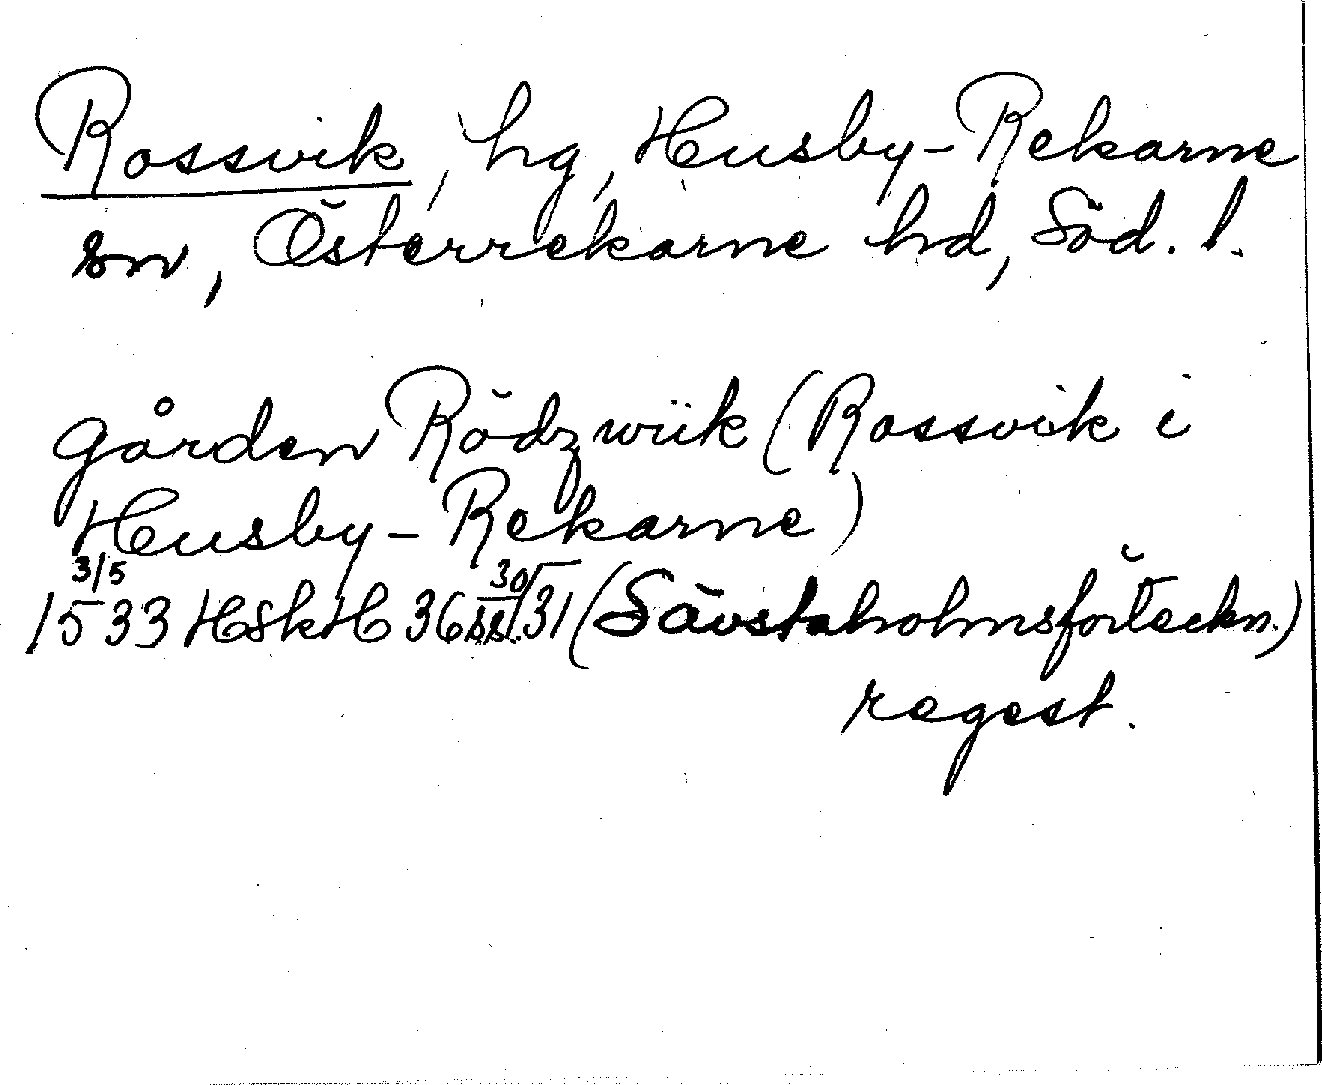 Rossvik, hg, Husby-Rekarne
sn, Österrekarne hd, Söd. l.
gården Rödzwiik (Rossvik i
Husby-Rekarne)
3/5
1533 HSkH 36 s. 30, 31 (Sävstaholmsförteckn.)
regest.